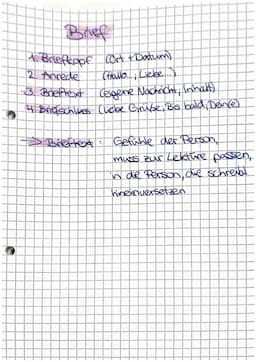 Brief
1. Briefkopf (Ort + Datum)
2. Anrede (Hallo, Liebe)
3. Brieftext (eigene Nachricht, Inhalt)
4. Briefschluss (Liebe Grüße, Bis bald, Dein(e)
-> Brieftext: Gefühle der Person,
muss zur Lektüre passen,
in die Person, die schreibt
hineinversetzen